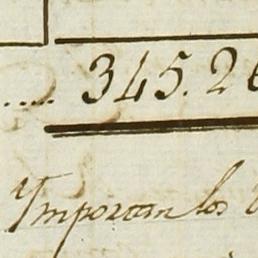 ..... 345.26
Ymportan los